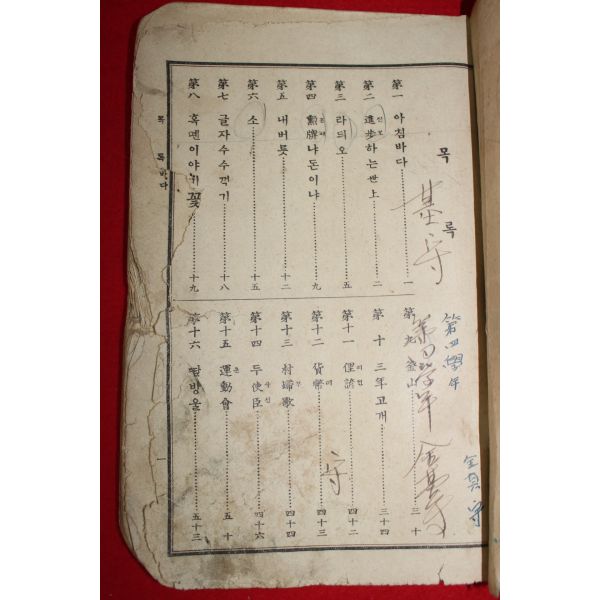 목 록
第一 아침바다 一
第二 進步하는 世上 二
第三 라듸오 五
第四 勳牌냐 돈이냐 九
第五 내버릇 十二
第六 소 十五
第七 글자수수꺽기 十八
第八 혹뗀이야기 十九
第九 釜山 三十
第十 三年고개 三十四
第十一 俚諺 四十二
第十二 貨幣 四十三
第十三 村婦歌 四十四
第十四 두使臣 四十六
第十五 運動會 五十
第十六 땀방울 五十三
목 록
바다
一
基守
第四學年
第四學年
守